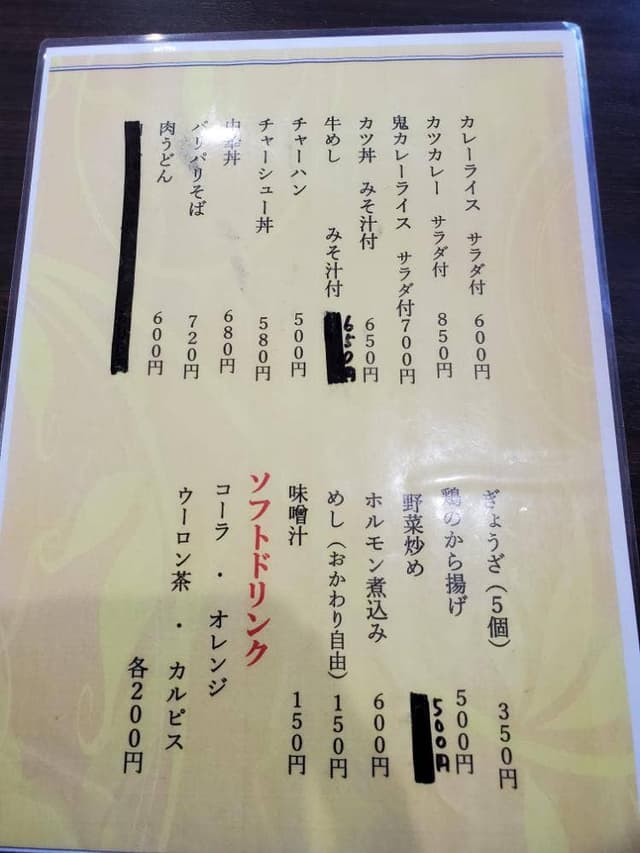 カレーライス サラダ付 600円
カツカレー サラダ付 850円
鬼カレーライス サラダ付 700円
カツ丼 みそ汁付 650円
牛めし みそ汁付 650円
チャーハン 500円
チャーシュー丼 580円
中華丼 680円
バリバリそば 720円
肉うどん 600円
ぎょうざ(5個) 350円
鶏のから揚げ 500円
野菜炒め 500円
ホルモン煮込み 600円
めし(おかわり自由) 150円
味噌汁 150円
ソフトドリンク
コーラ ・ オレンジ
ウーロン茶 ・ カルピス
各200円